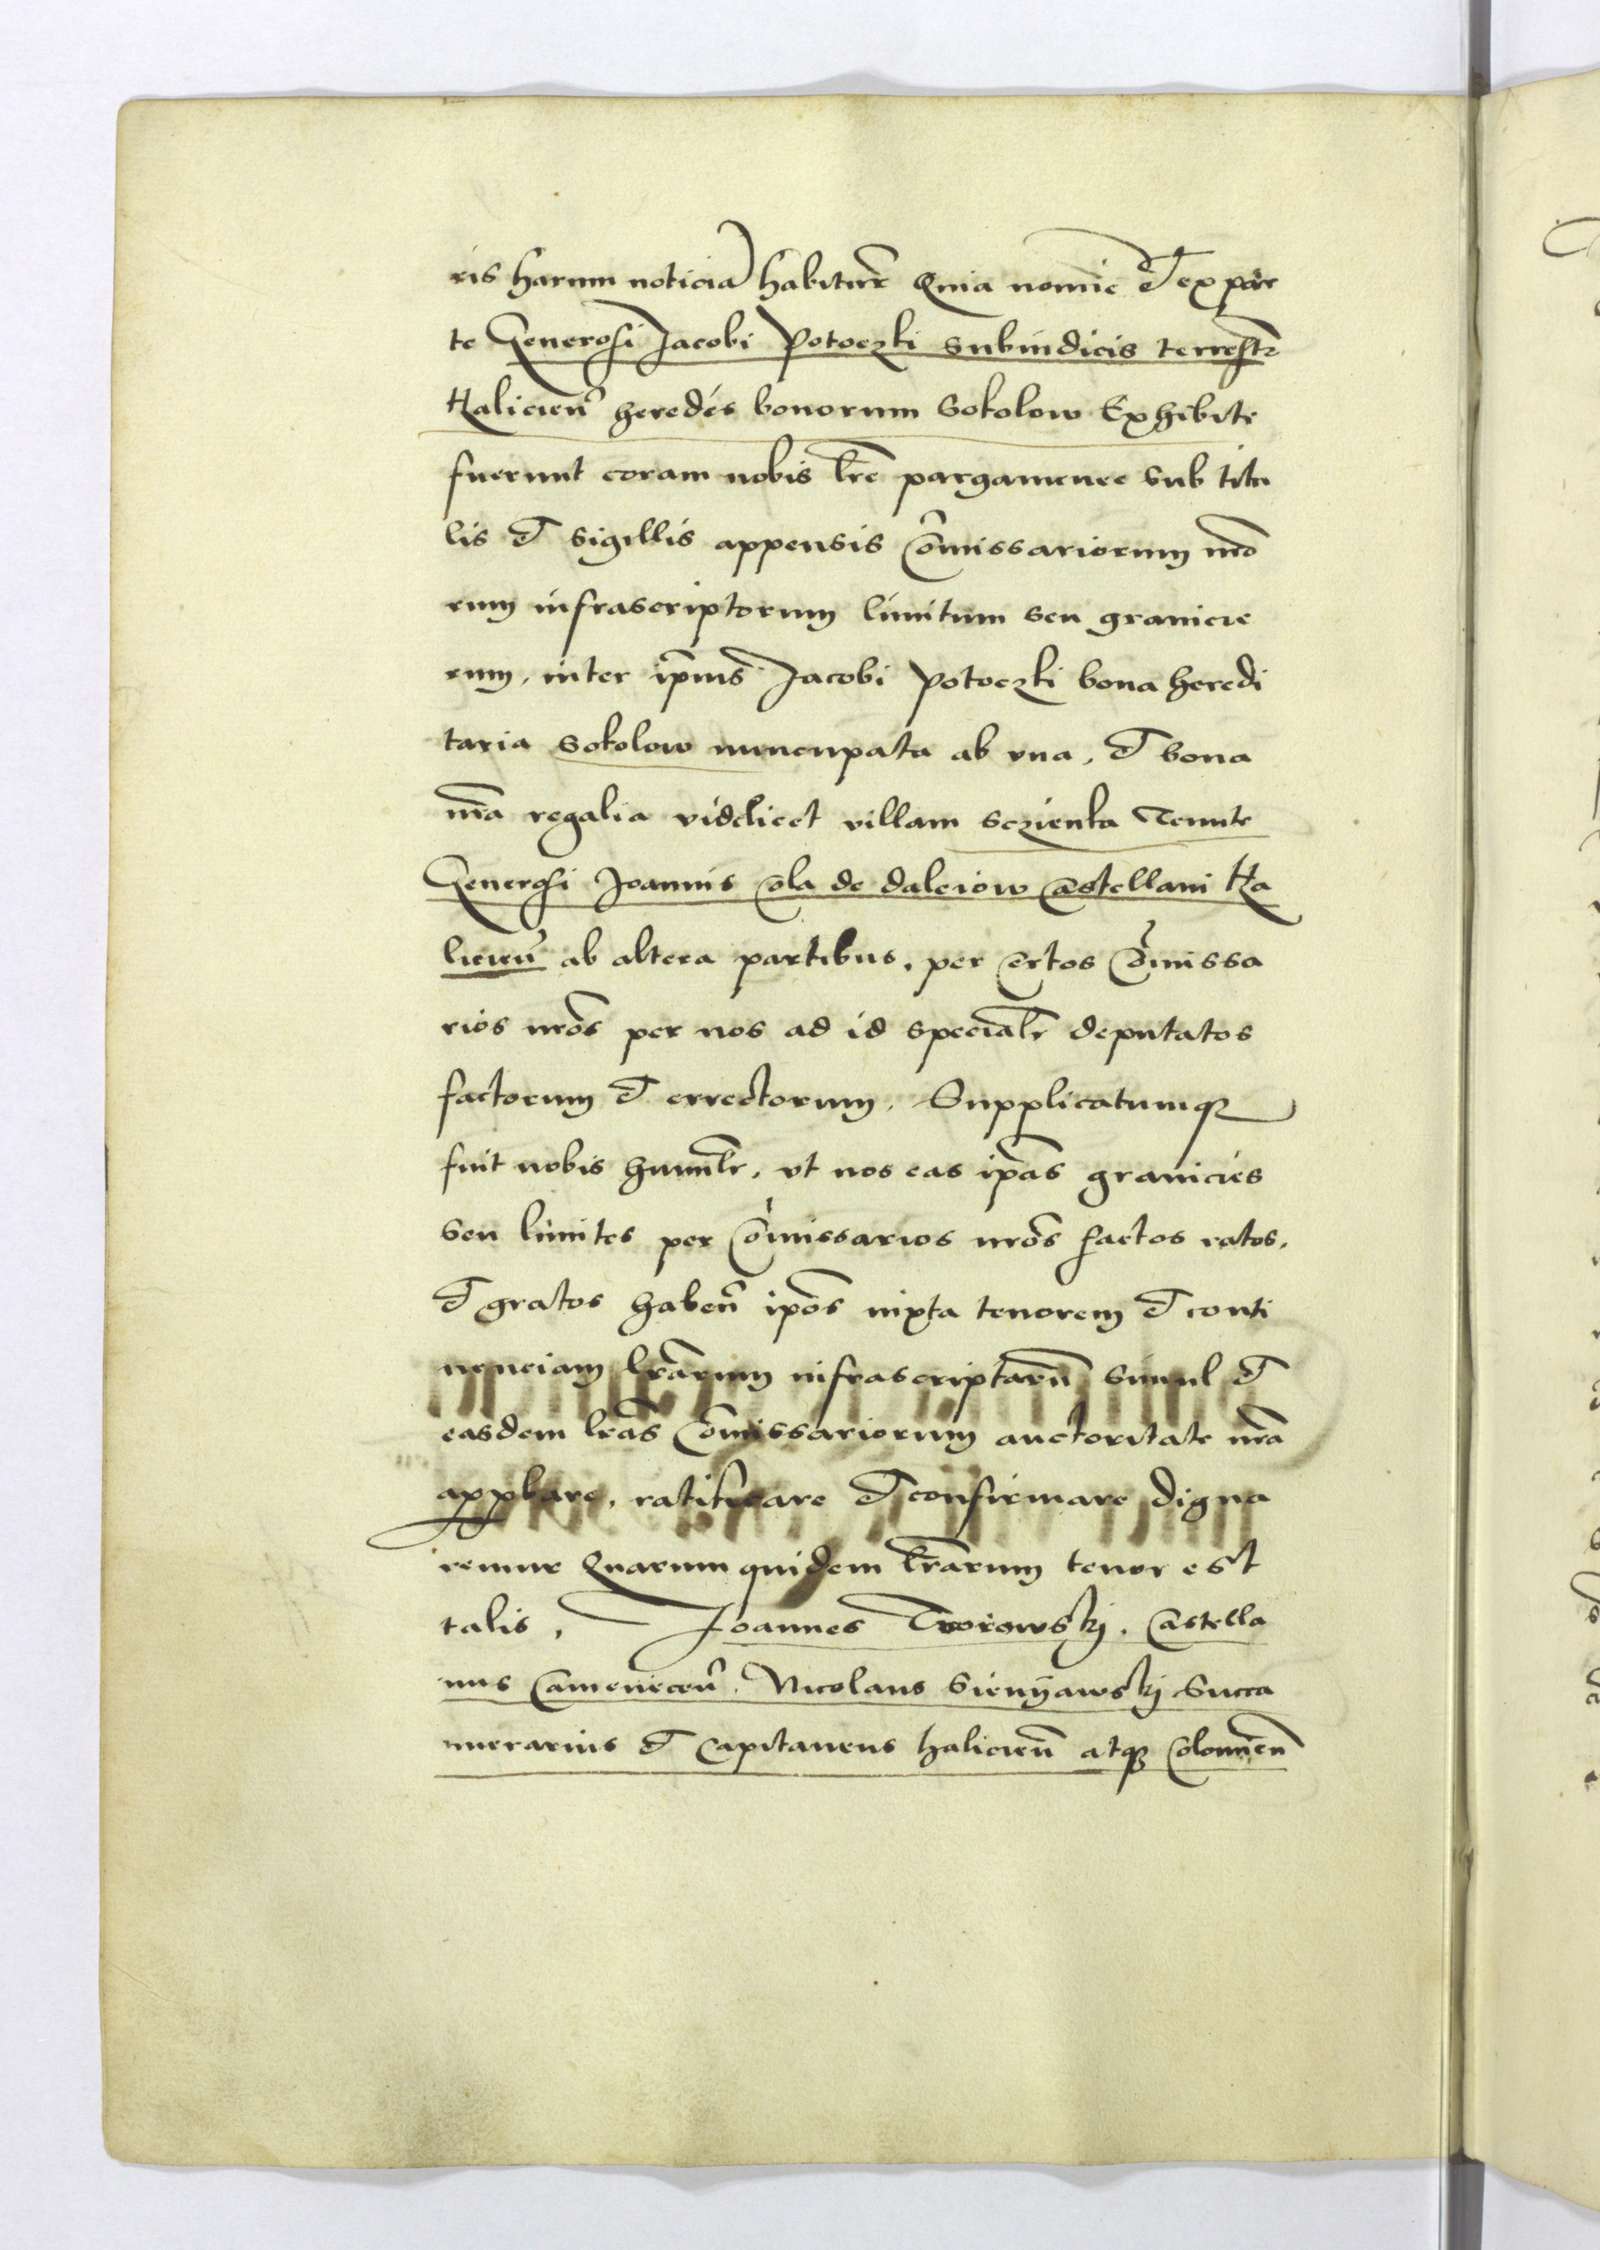 ris harum noticiã habiturũ Quia nomĩe et ex par
te Generosi Jacobi Potoczki subiudicis terrestr̃
Halicieñ heredes bonorum Sokolow Exhibite
fuerunt coram nobis lr̃e pargamenee sub titu
lis et sigillis appensis Com̃issariorum nr̃o
rum infrascriptorum limitum seu granicie
rum, inter ip̃ius Jacobi Potoczki bona heredi
taria Sokolow nuncupata ab vna, et bona
nr̃a regalia videlicet villam Sczienka Tenute
Generosi Joannis Cola de daleiow Castellani Ha
licieñ ab altera partibus, per certos Com̃issa
rios nr̃os per nos ad id specialr̃ deputatos
factorum et errectorum. Supplicatumq3
fuit nobis humilr̃, vt nos eas ip̃as granicies
seu limites per Com̃issarios nr̃os factos ratos,
et gratos habeñ ip̃os iuxta tenorem et conti
nenciam lr̃arum infrascriptarũ simul et
easdem lr̃as Com̃issariorum auctoritate nr̃a
approbare, ratificare et confirmare digna
remur Quarum quidem lr̃arum tenor est
talis, Joannes Tworowskj, Castella
nus Cameneceñ, Nicolaus Sienyawskj Succa
merarius et Capitaneus halicieñ atq3 Colomieñ